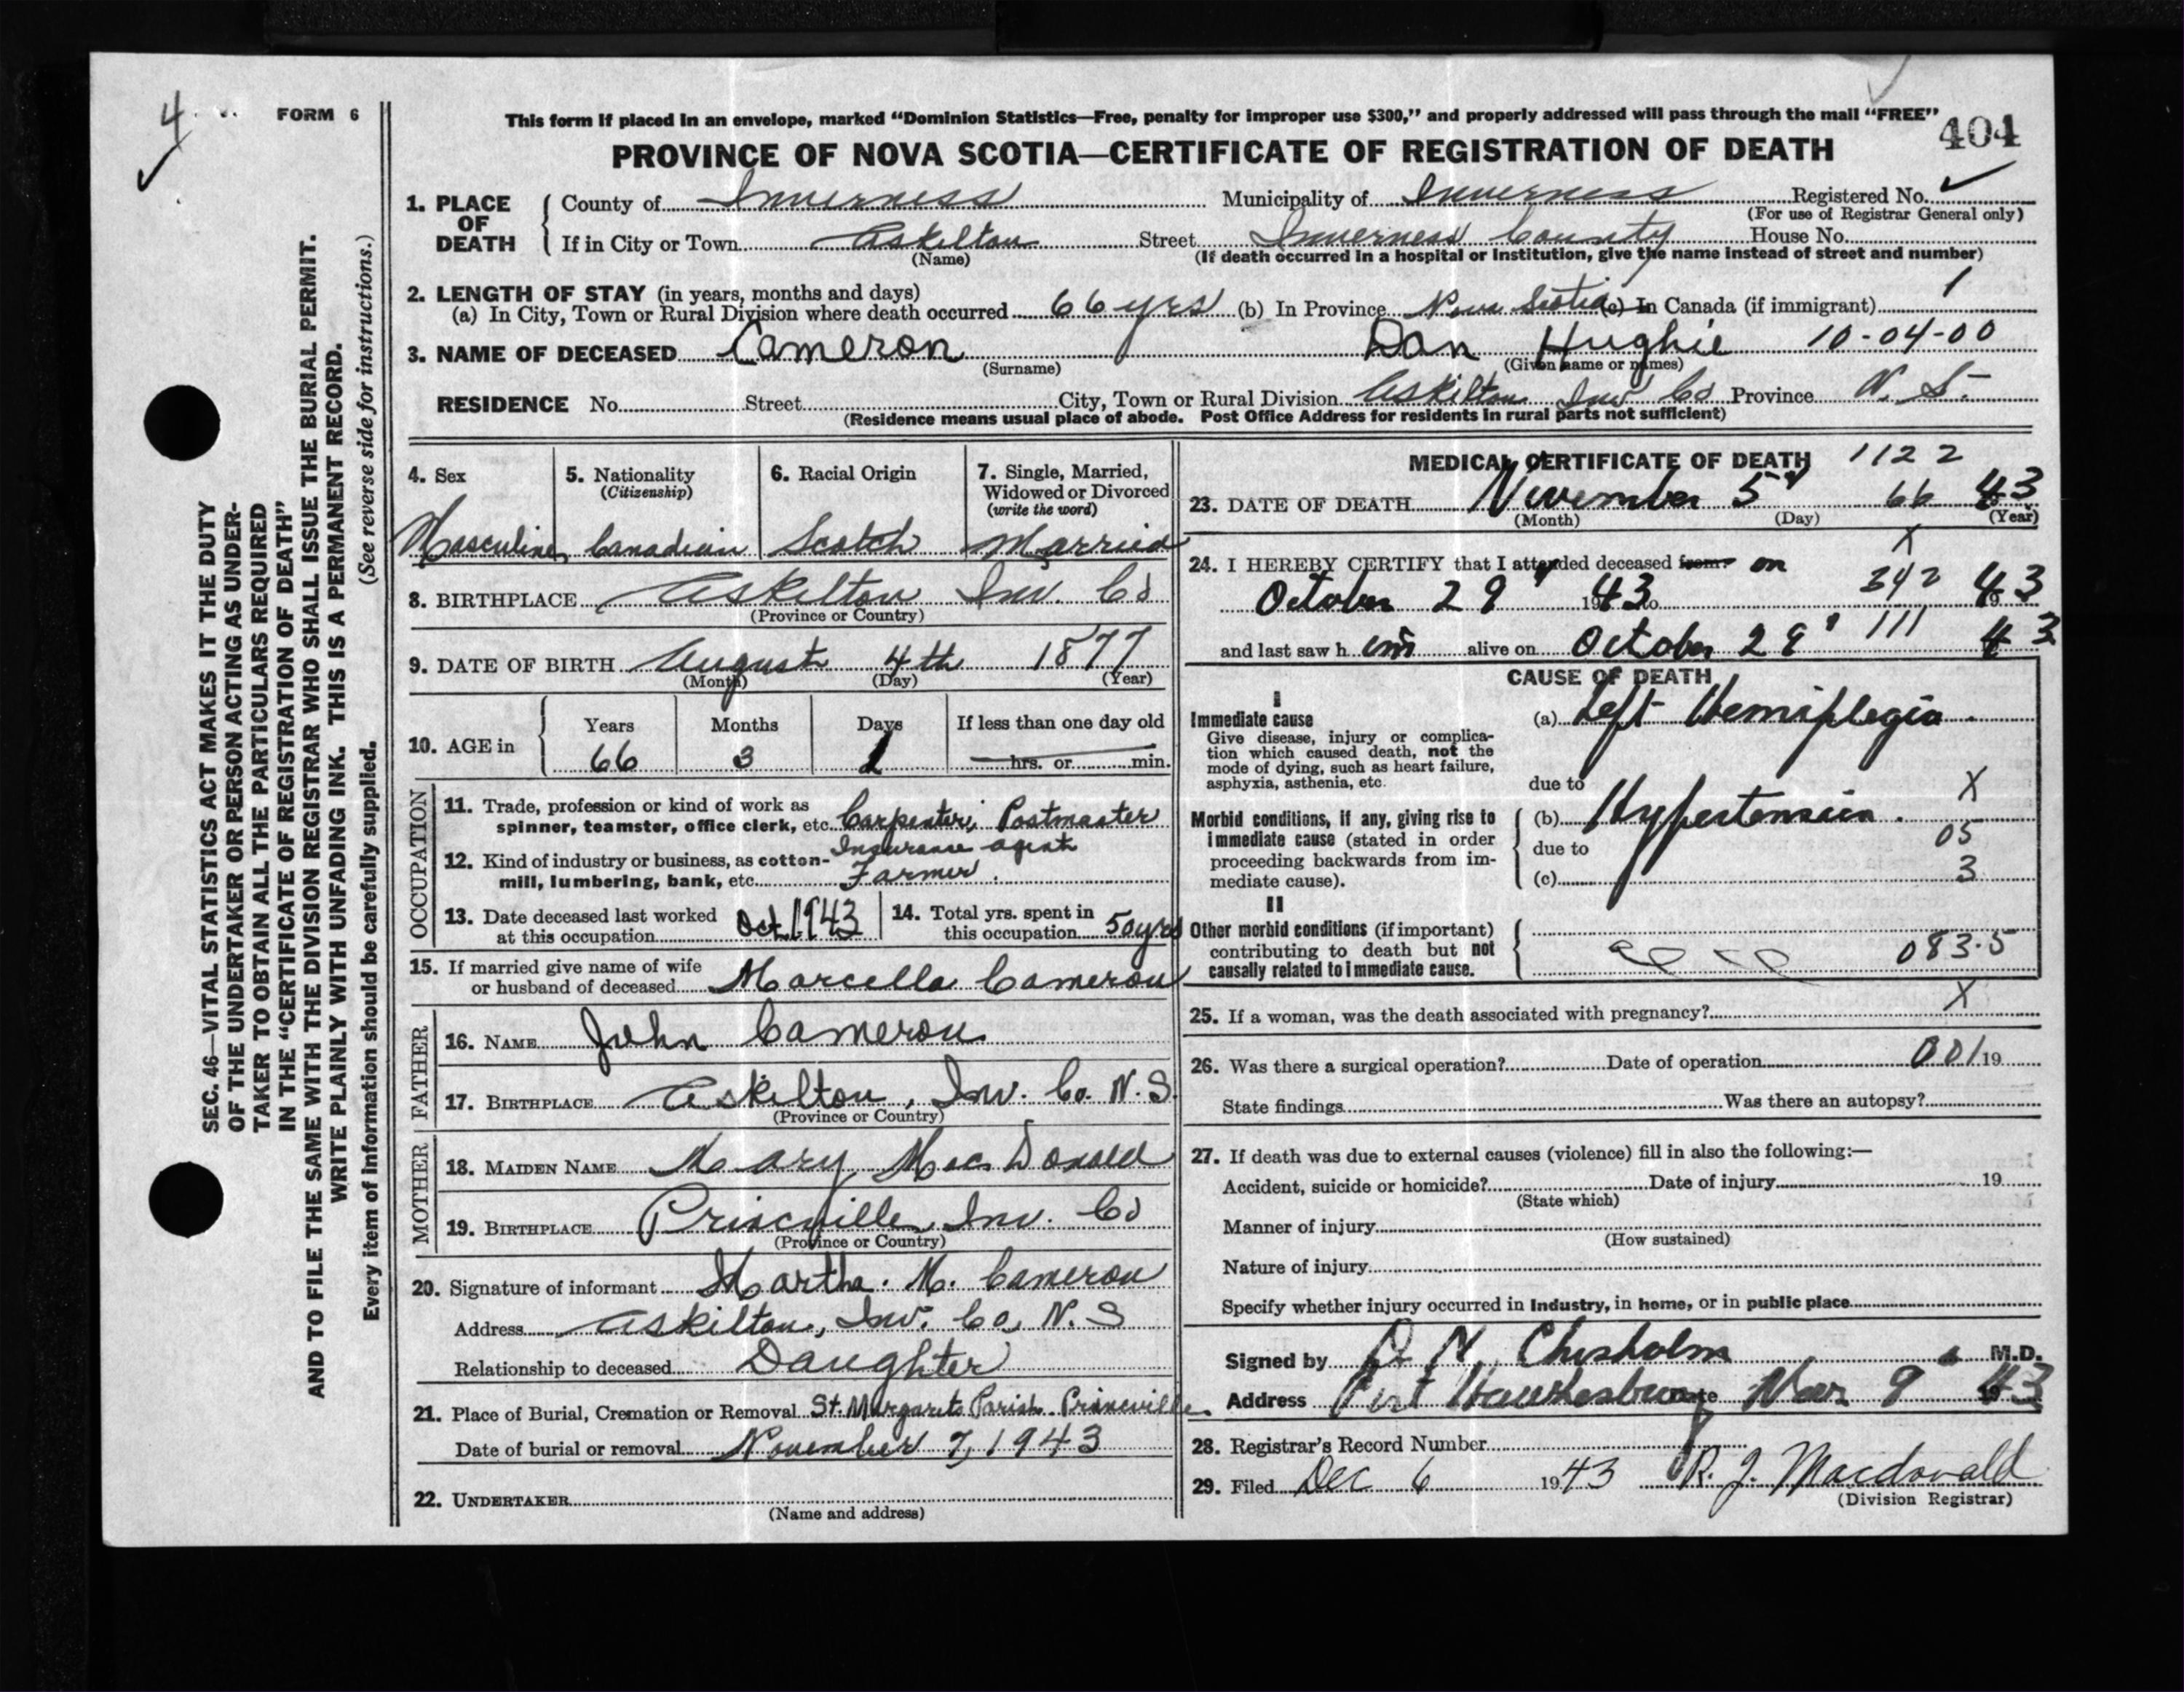 4
FORM 6
This form if placed in an envelope, marked "Dominion Statistics—Free, penalty for improper use $300," and properly addressed will pass through the mail "FREE"
404
PROVINCE OF NOVA SCOTIA—CERTIFICATE OF REGISTRATION OF DEATH
1. PLACE OF DEATH County of Inverness Municipality of Inverness Registered No.
(For use of Registrar General only)
If in City or Town Askilton Street Inverness County House No.
(Name) (If death occurred in a hospital or institution, give the name instead of street and number)
2. LENGTH OF STAY (in years, months and days) 1
(a) In City, Town or Rural Division where death occurred 66 yrs (b) In Province Nova Scotia (c) In Canada (if immigrant)
3. NAME OF DECEASED Cameron Dan Hughie 10-04-00
(Surname) (Given name or names)
RESIDENCE No. Street City, Town or Rural Division Askilton Inv Co Province N. S.
(Residence means usual place of abode. Post Office Address for residents in rural parts not sufficient)
4. Sex 5. Nationality (Citizenship) 6. Racial Origin 7. Single, Married, Widowed or Divorced (write the word)
Masculine Canadian Scotch Married
8. BIRTHPLACE Askilton Inv. Co
(Province or Country)
9. DATE OF BIRTH August 4th 1877
(Month) (Day) (Year)
10. AGE in Years Months Days If less than one day old
66 3 1 hrs. or min.
OCCUPATION
11. Trade, profession or kind of work as spinner, teamster, office clerk, etc. Carpenter, Postmaster
Insurance agent
12. Kind of industry or business, as cotton-mill, lumbering, bank, etc. Farmer.
13. Date deceased last worked at this occupation Oct 1943 14. Total yrs. spent in this occupation 50 yrs
15. If married give name of wife or husband of deceased Marcella Cameron
FATHER
16. NAME John Cameron
17. BIRTHPLACE Askilton, Inv. Co. N.S.
(Province or Country)
MOTHER
18. MAIDEN NAME Mary MacDonald
19. BIRTHPLACE Princville, Inv. Co
(Province or Country)
20. Signature of informant Martha. M. Cameron
Address Askilton, Inv. Co, N. S
Relationship to deceased Daughter
21. Place of Burial, Cremation or Removal St. Margarets Parish Princville.
Date of burial or removal November 7, 1943
22. UNDERTAKER
(Name and address)
MEDICAL CERTIFICATE OF DEATH 1122
23. DATE OF DEATH November 5 66 43
(Month) (Day) (Year)
X
24. I HEREBY CERTIFY that I attended deceased from on
October 29 1943 to 342 1943
and last saw him alive on October 29 111 43
CAUSE OF DEATH
I
Immediate cause (a) Left Hemiplegia.
Give disease, injury or complication which caused death, not the mode of dying, such as heart failure, asphyxia, asthenia, etc.
due to X
Morbid conditions, if any, giving rise to immediate cause (stated in order proceeding backwards from immediate cause).
(b) Hypertension.
due to 05
(c) 3
II
Other morbid conditions (if important) contributing to death but not causally related to immediate cause. 083.5
25. If a woman, was the death associated with pregnancy? X
26. Was there a surgical operation? Date of operation 001 19
State findings Was there an autopsy?
27. If death was due to external causes (violence) fill in also the following:—
Accident, suicide or homicide? Date of injury 19
(State which)
Manner of injury
(How sustained)
Nature of injury
Specify whether injury occurred in Industry, in home, or in public place
Signed by Chisholm M.D.
Address Port Hawkesbury Date Nov 9 1943
28. Registrar's Record Number
29. Filed Dec 6 1943 R. J. Macdonald
(Division Registrar)
SEC. 46—VITAL STATISTICS ACT MAKES IT THE DUTY
OF THE UNDERTAKER OR PERSON ACTING AS UNDER-
TAKER TO OBTAIN ALL THE PARTICULARS REQUIRED
IN THE "CERTIFICATE OF REGISTRATION OF DEATH"
AND TO FILE THE SAME WITH THE DIVISION REGISTRAR WHO SHALL ISSUE THE BURIAL PERMIT.
WRITE PLAINLY WITH UNFADING INK. THIS IS A PERMANENT RECORD.
Every item of information should be carefully supplied. (See reverse side for instructions.)